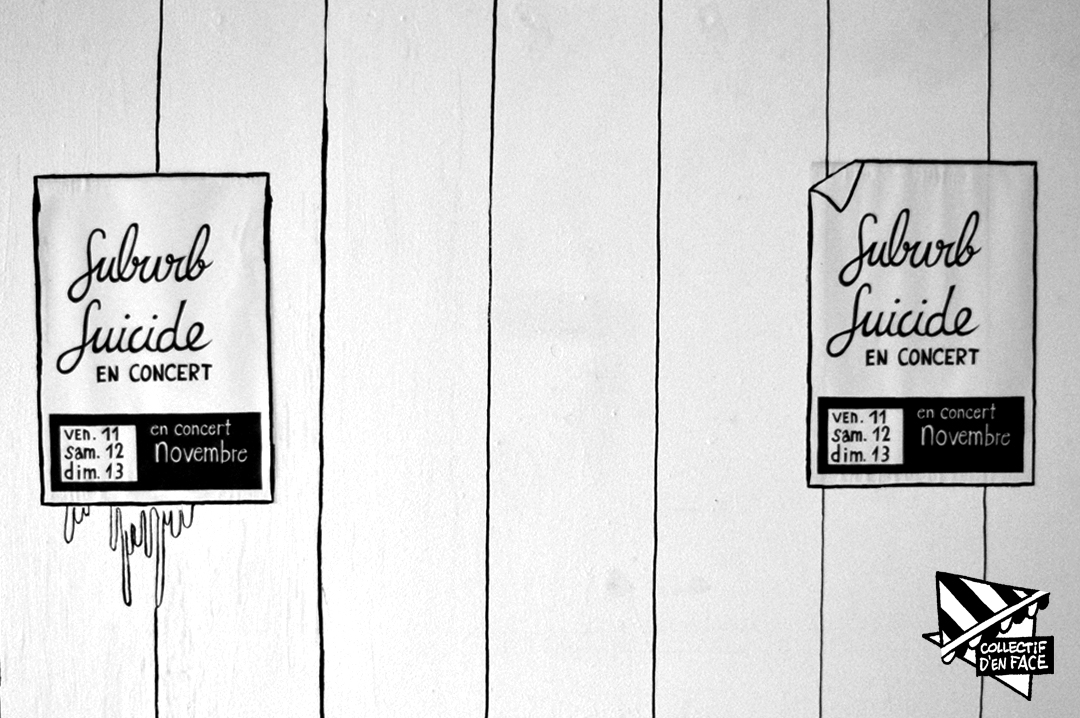 Suburb
Suicide
EN CONCERT
ven. 11
sam. 12
dim. 13
en concert
Novembre
Suburb
Suicide
EN CONCERT
ven. 11
sam. 12
dim. 13
en concert
Novembre
COLLECTIF
D'EN FACE